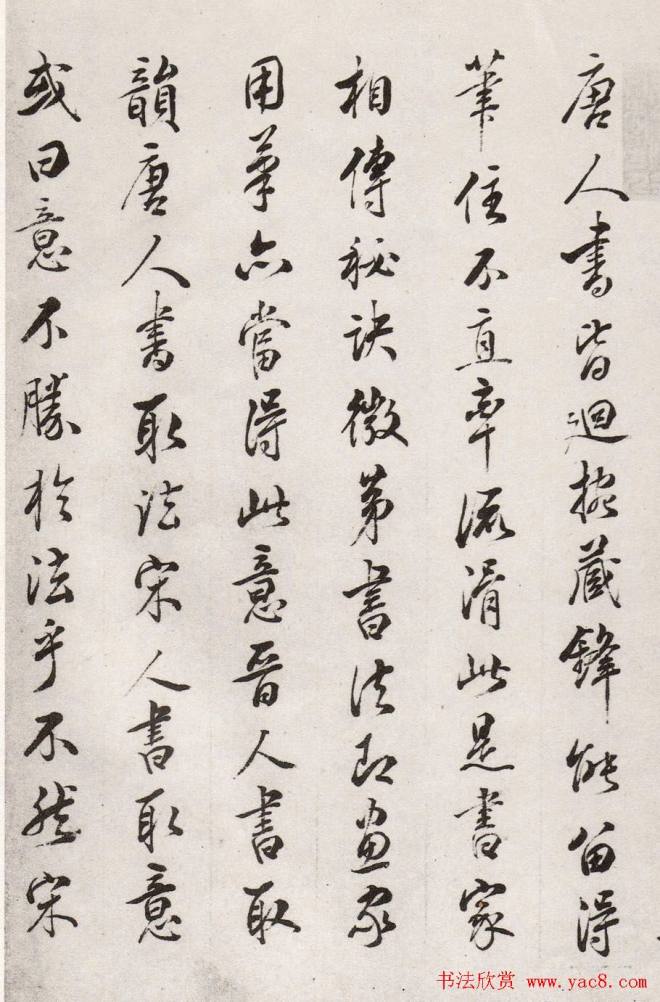 唐人書皆迴挽藏鋒能留得
筆住不直率流滑此是書家
相傳秘訣微第書法即畫家
用筆亦當得此意晉人書取
韻唐人書取法宋人書取意
或曰意不勝於法乎不然宋
书法欣赏 www.yac8.com